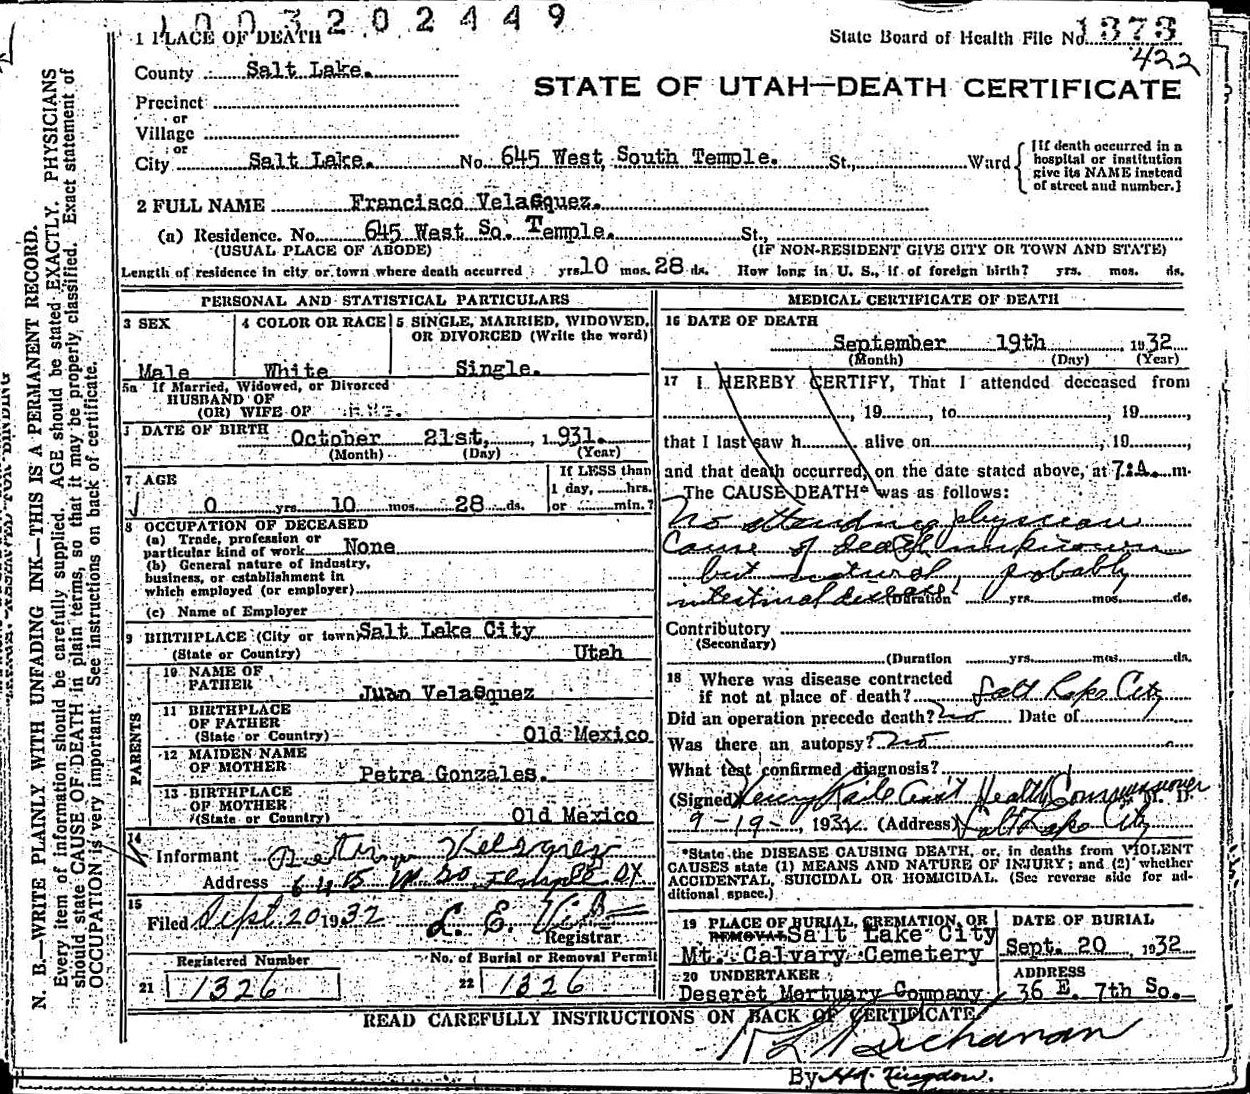 1003202449
1 PLACE OF DEATH
State Board of Health File No. 1373
422
County Salt Lake.
STATE OF UTAH—DEATH CERTIFICATE
Precinct
or
Village
or
City Salt Lake. No. 645 West South Temple. St., Ward
[If death occurred in a hospital or institution give its NAME instead of street and number.]
2 FULL NAME Francisco Velasquez.
(a) Residence. No. 645 West So. Temple. St.,
(USUAL PLACE OF ABODE) (IF NON-RESIDENT GIVE CITY OR TOWN AND STATE)
Length of residence in city or town where death occurred yrs. 10 mos. 28 ds. How long in U. S., if of foreign birth? yrs. mos. ds.
PERSONAL AND STATISTICAL PARTICULARS
3 SEX
Male
4 COLOR OR RACE
White
5 SINGLE, MARRIED, WIDOWED, OR DIVORCED (Write the word)
Single.
5a If Married, Widowed, or Divorced
HUSBAND OF
(OR) WIFE OF
DATE OF BIRTH October 21st, 1931.
(Month) (Day) (Year)
7 AGE
0 yrs. 10 mos. 28 ds.
If LESS than
1 day, hrs.
or min.?
8 OCCUPATION OF DECEASED
(a) Trade, profession or
particular kind of work None
(b) General nature of industry,
business, or establishment in
which employed (or employer)
(c) Name of Employer
9 BIRTHPLACE (City or town) Salt Lake City
(State or Country) Utah
PARENTS
10 NAME OF
FATHER Juan Velasquez
11 BIRTHPLACE
OF FATHER
(State or Country) Old Mexico
12 MAIDEN NAME
OF MOTHER Petra Gonzales.
13 BIRTHPLACE
OF MOTHER
(State or Country) Old Mexico
14
Informant Velasquez
Address 645 W. So. Temple St
15
Filed Sept. 20 1932 L. E.
Registrar
Registered Number
21 1326
No. of Burial or Removal Permit
22 1326
MEDICAL CERTIFICATE OF DEATH
16 DATE OF DEATH
September 19th 1932
(Month) (Day) (Year)
17 I HEREBY CERTIFY, That I attended deceased from
, 19 , to , 19 ,
that I last saw h alive on , 19 ,
and that death occurred, on the date stated above, at 7:A. m.
The CAUSE DEATH* was as follows:
No attending physician
Cause of death unknown
but natural, probably
intestinal disease. (Duration yrs. mos. ds.
Contributory
(Secondary)
(Duration yrs. mos. ds.
18 Where was disease contracted
if not at place of death? Salt Lake City
Did an operation precede death? No Date of
Was there an autopsy? No
What test confirmed diagnosis?
(Signed) Ass't Health Commissioner M. D.
9-19-, 1932 (Address) Salt Lake City
*State the DISEASE CAUSING DEATH, or, in deaths from VIOLENT
CAUSES state (1) MEANS AND NATURE OF INJURY; and (2) whether
ACCIDENTAL, SUICIDAL OR HOMICIDAL. (See reverse side for additional space.)
19 PLACE OF BURIAL, CREMATION, OR
REMOVAL Salt Lake City
Mt. Calvary Cemetery
DATE OF BURIAL
Sept. 20, 1932
20 UNDERTAKER
Deseret Mortuary Company
ADDRESS
36 E. 7th So.
READ CAREFULLY INSTRUCTIONS ON BACK OF CERTIFICATE
Buchanan
By
N. B.—WRITE PLAINLY, WITH UNFADING INK—THIS IS A PERMANENT RECORD.
Every item of information should be carefully supplied. AGE should be stated EXACTLY. PHYSICIANS
should state CAUSE OF DEATH in plain terms, so that it may be properly classified. Exact statement of
OCCUPATION is very important. See instructions on back of certificate.